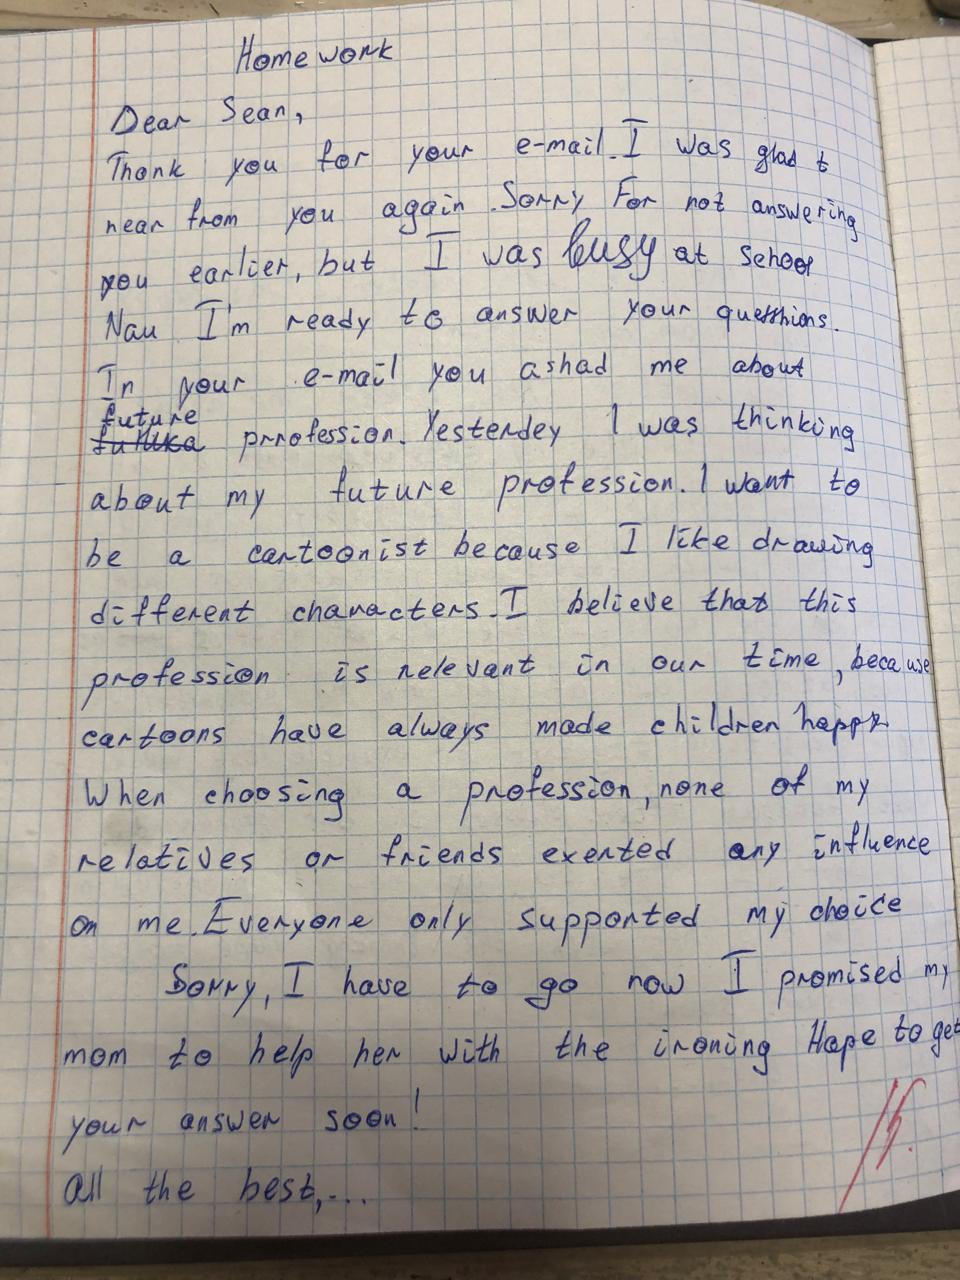 Homework
Dear Sean,
Thank you for your e-mail. I was glad t
hear from you again. Sorry For not answering
you earlier, but I was busy at school
Nau I'm ready to answer your questhions.
In your e-mail you ashad me about
future
prrofession. Yesterdey I was thinking
about my future profession. I want to
be a cartoonist because I like drawing
different characters. I believe that this
profession is relevant in our time, because
cartoons have always made children happy
When choosing a profession, none of my
relatives or friends exerted any influence
on me. Everyone only supported my choice
Sorry, I have to go now I promised my
mom to help her with the ironing Hape to get
your answer soon!
All the best,...